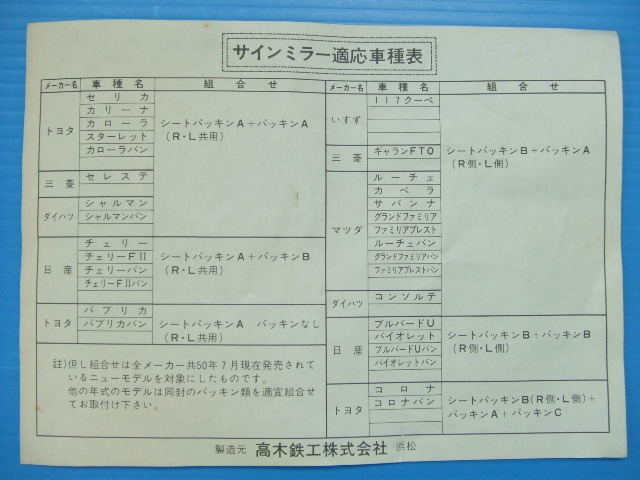 サインミラー適応車種表
メーカー名 車種名 組合せ
トヨタ
セリカ
カリーナ
カローラ
スターレット
カローラバン
シートパッキンA＋パッキンA
(R・L共用)
三菱
セレステ
ダイハツ
シャルマン
シャルマンバン
日産
チェリー
チェリーFⅡ
チェリーバン
チェリーFⅡバン
シートパッキンA＋パッキンB
(R・L共用)
トヨタ
パブリカ
パブリカバン
シートパッキンA パッキンなし
(R・L共用)
註)但し組合せは全メーカー共50年7月現在発売されて
いるニューモデルを対象にしたものです。
他の年式のモデルは同封のパッキン類を適宜組合せ
てお取付け下さい。
メーカー名 車種名 組合せ
いすゞ
117クーペ
三菱
ギャランFTO
シートパッキンB＋パッキンA
(R側・L側)
マツダ
ルーチェ
カペラ
サバンナ
グランドファミリア
ファミリアプレスト
ルーチェバン
グランドファミリアバン
ファミリアプレストバン
ダイハツ
コンソルテ
日産
ブルバードU
バイオレット
ブルバードUバン
バイオレットバン
シートパッキンB＋パッキンB
(R側・L側)
トヨタ
コロナ
コロナバン
シートパッキンB(R側・L側)＋
パッキンA＋パッキンC
製造元 高木鉄工株式会社 浜松